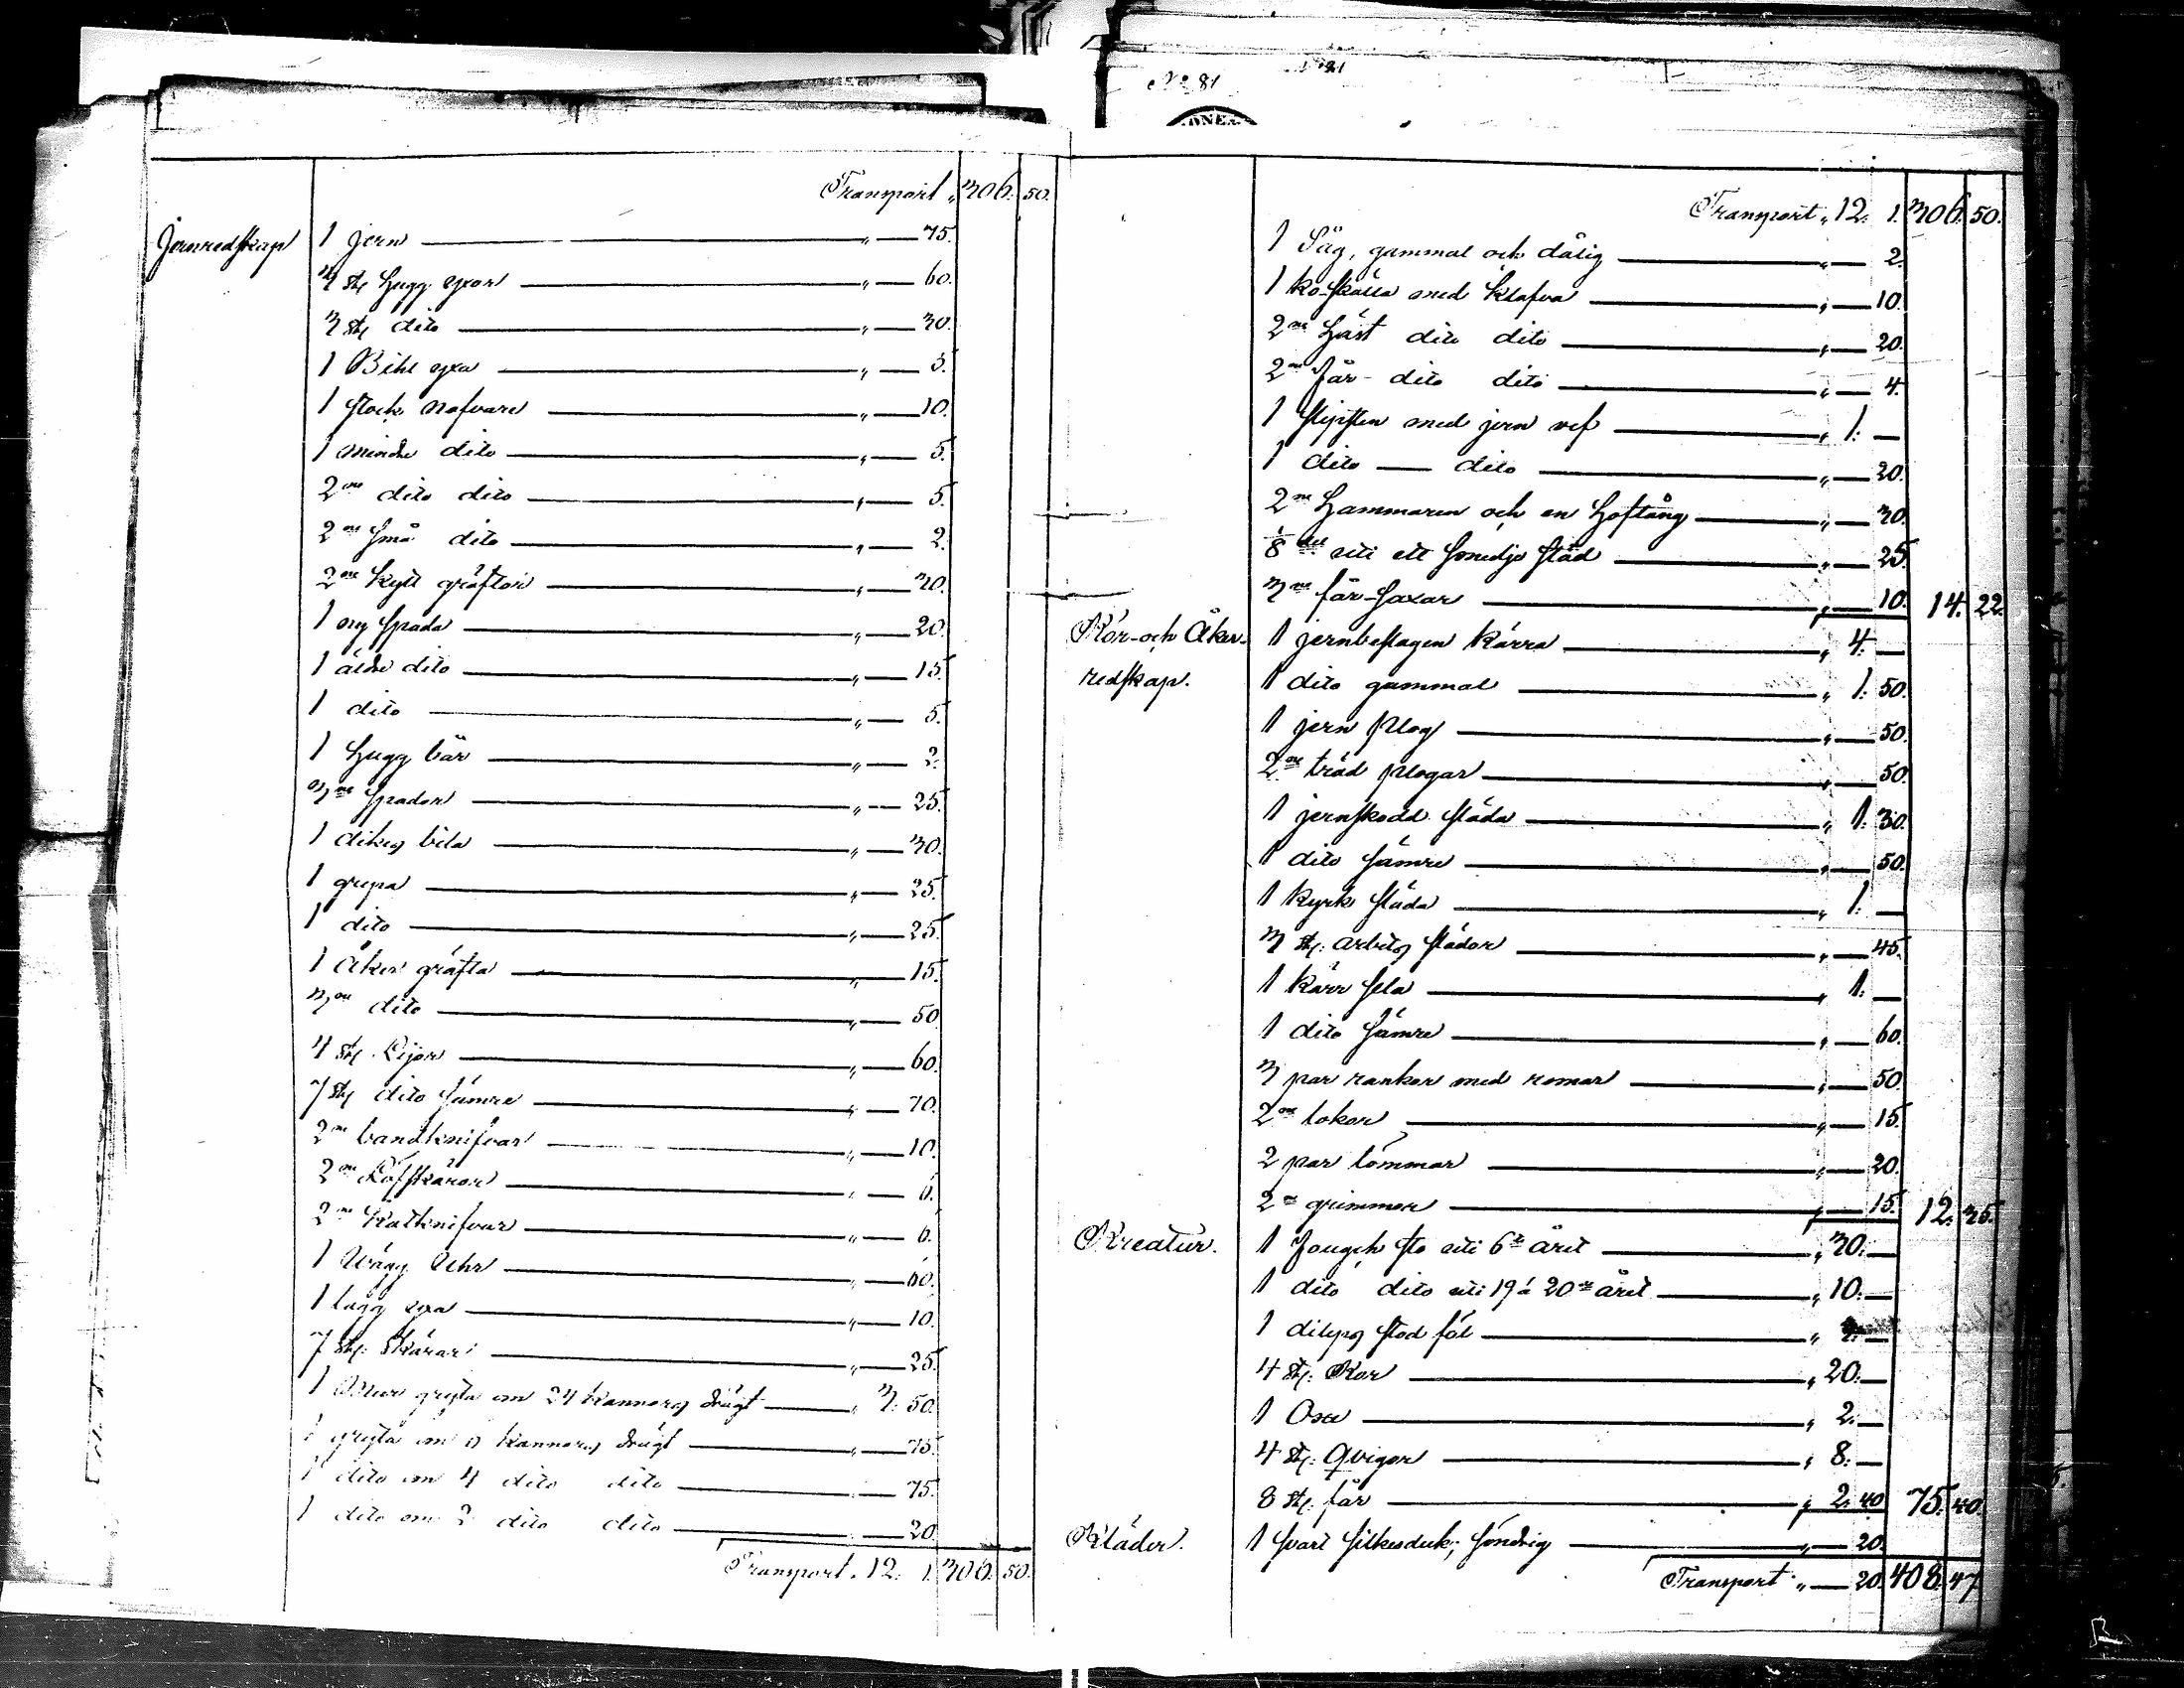 No 81
Transport „ 306. 50.
Jernredskap 1 jern „ — 75.
4 st. hugg yxor „ — 60.
3 st. dito „ — 30.
1 Bihl yxa „ — 5.
1 stock nafvare „ — 10.
1 mindre dito „ — 5.
2ne dito dito „ — 5.
2ne små dito „ — 2.
2ne kytt gräftor „ — 30.
1 ny spada „ — 20.
1 äldre dito „ — 15.
1 dito „ — 5.
1 hugg bär „ —
3ne spador „ — 25.
1 dikes bila „ — 30.
1 grepa „ — 25.
1 dito „ — 25.
1 Åker gräfta „ — 15.
3ne dito „ — 50.
4 st. Lijor „ — 60.
7 st. dito sämre „ — 70.
2ne bandknifvar „ — 10.
2ne Löfskäror „ — 6.
2ne Kattknifvar „ — 6.
1 Vägg Uhr „ — 60.
1 lagg yxa „ — 10.
7 st. Skärar „ — 25.
1 Mur gryta om 24 kannors drägt „ 3. 50.
1 gryta om kannors drägt „ — 75.
1 dito om 4 dito dito — 75.
1 dito om 2 dito dito — 20.
Transport „ 12. 1. 306. 50.
Transport „ 12. 1. 306. 50.
1 Såg, gammal och dålig „ — 2.
1 ko-skälla med klafva „ — 10.
2ne häst dito dito „ — 20.
2ne får- dito dito „ — 4.
1 slipsten med jern vef „ 1. —
1 dito — dito „ — 20.
2ne Hammaren och en hoftång „ — 30.
1/8 del uti ett smedje städ „ — 25.
3ne får-saxar „ — 10. 14. 22.
Kör- och Åker- 1 jernbeslagen kärra „ 4. —
redskap. 1 dito gammal „ 1. 50.
1 jern plog „ — 50.
2ne träd plogar „ — 50.
1 jernskodd släda „ 1. 30.
1 dito sämre „ — 50.
1 kyrk släda „ 1. —
3 st. arbets slädor „ — 45.
1 kärr sela „ 1. —
1 dito sämre „ — 60.
3 par rankor med remar „ — 50.
2ne lokor „ — 15.
2 par tömmar „ — 20.
2ne grimmor „ — 15. 12. 35.
Kreatur. 1 sto uti 6te året „ 30. —
1 dito dito uti 19 á 20de året „ 10. —
1 stod föl „ —
4 st. Kor „ 20. —
1 Oxe „ 2. —
4 st. Qvigor „ 8. —
8 st. får „ 2. 40 75. 40.
Kläder. 1 svart silkesduk, söndrig „ — 20.
Transport „ — 20. 408. 47.